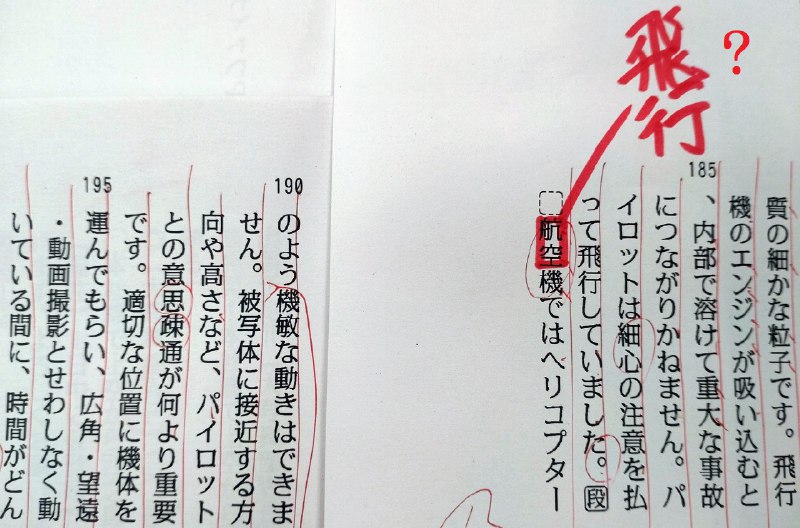 飛行?
質の細かな粒子です。飛行
機のエンジンが吸い込むと
185
、内部で溶けて重大な事故
につながりかねません。パ
イロットは細心の注意を払
って飛行していました。段
航空機ではヘリコプター
190
のよう機敏な動きはできま
せん。被写体に接近する方
向や高さなど、パイロット
との意思疎通が何より重要
です。適切な位置に機体を
195
運んでもらい、広角・望遠
・動画撮影とせわしなく動
いている間に、時間がどん